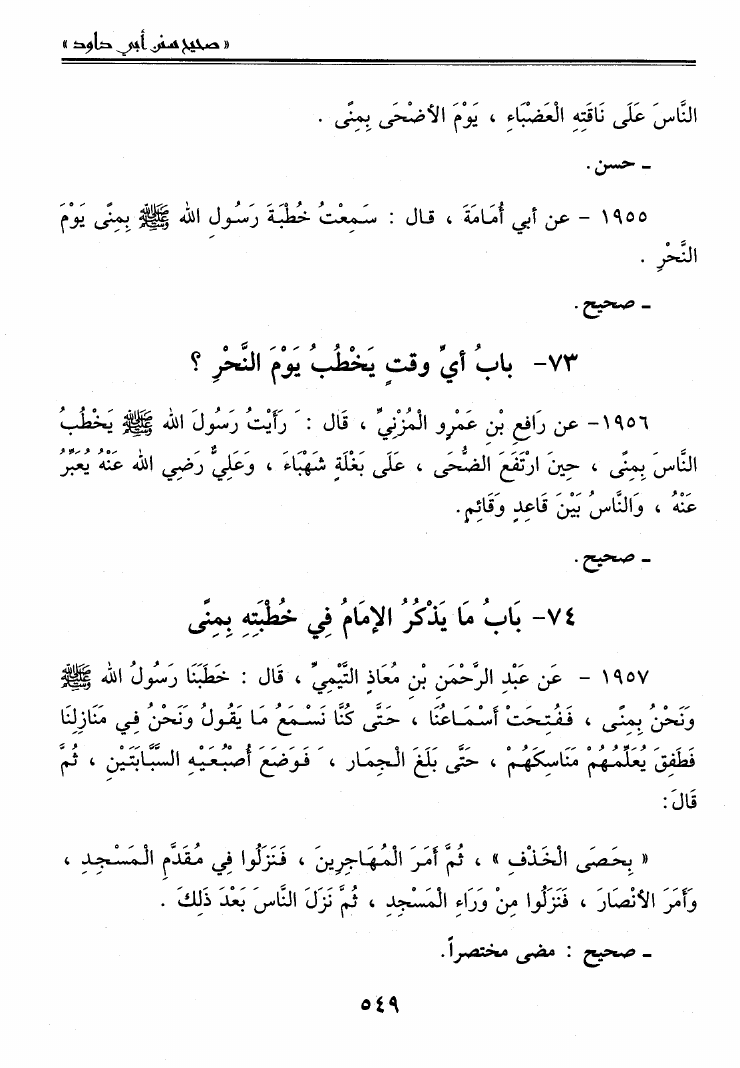 « صحيح سنن أبي داود »
النَّاسَ عَلَى نَاقَتِهِ الْعَضْبَاءِ ، يَوْمَ الأضْحَى بِمِنًى .
ـ حسن.
١٩٥٥ – عن أبي أُمَامَةَ ، قال : سَمِعْتُ خُطْبَةَ رَسُولِ الله ﷺ بِمِنًى يَوْمَ
النَّحْرِ .
ـ صحيح.
٧٣- بابُ أيِّ وقتٍ يَخْطُبُ يَوْمَ النَّحْرِ ؟
١٩٥٦- عن رَافِعِ بْنِ عَمْرٍو الْمُزَنِيِّ ، قَال : رَأَيْتُ رَسُولَ الله ﷺ يَخْطُبُ
النَّاسَ بِمِنًى ، حِينَ ارْتَفَعَ الضُّحَى ، عَلَى بَغْلَةٍ شَهْبَاءَ ، وَعَلِيٌّ رَضِي الله عَنْهُ يُعَبِّرُ
عَنْهُ ، وَالنَّاسُ بَيْنَ قَاعِدٍ وَقَائِمٍ.
ـ صحيح.
٧٤- بَابُ مَا يَذْكُرُ الإمَامُ فِي خُطْبَتِهِ بِمِنًى
١٩٥٧ – عَن عَبْدِ الرَّحْمَنِ بْنِ مُعَاذٍ التَّيْمِيِّ ، قَال : خَطَبَنَا رَسُولُ الله ﷺ
وَنَحْنُ بِمِنًى ، فَفُتِحَتْ أسْمَاعُنَا ، حَتَّى كُنَّا نَسْمَعُ مَا يَقُولُ وَنَحْنُ فِي مَنَازِلِنَا
فَطَفِقَ يُعَلِّمُهُمْ مَنَاسِكَهُمْ ، حَتَّى بَلَغَ الْجِمَار ، فَوَضَعَ أُصْبُعَيْهِ السَّبَّابَتَيْنِ ، ثُمَّ
قَالَ:
« بِحَصَى الْخَذْفِ » ، ثُمَّ أمَرَ الْمُهَاجِرِينَ ، فَنَزَلُوا فِي مُقَدَّمِ الْمَسْجِدِ ،
وَأمَرَ الأنْصَارَ ، فَنَزَلُوا مِنْ وَرَاءِ الْمَسْجِدِ ، ثُمَّ نَزَلَ النَّاسَ بَعْدَ ذَلِكَ .
ـ صحيح : مضى مختصراً.
٥٤٩